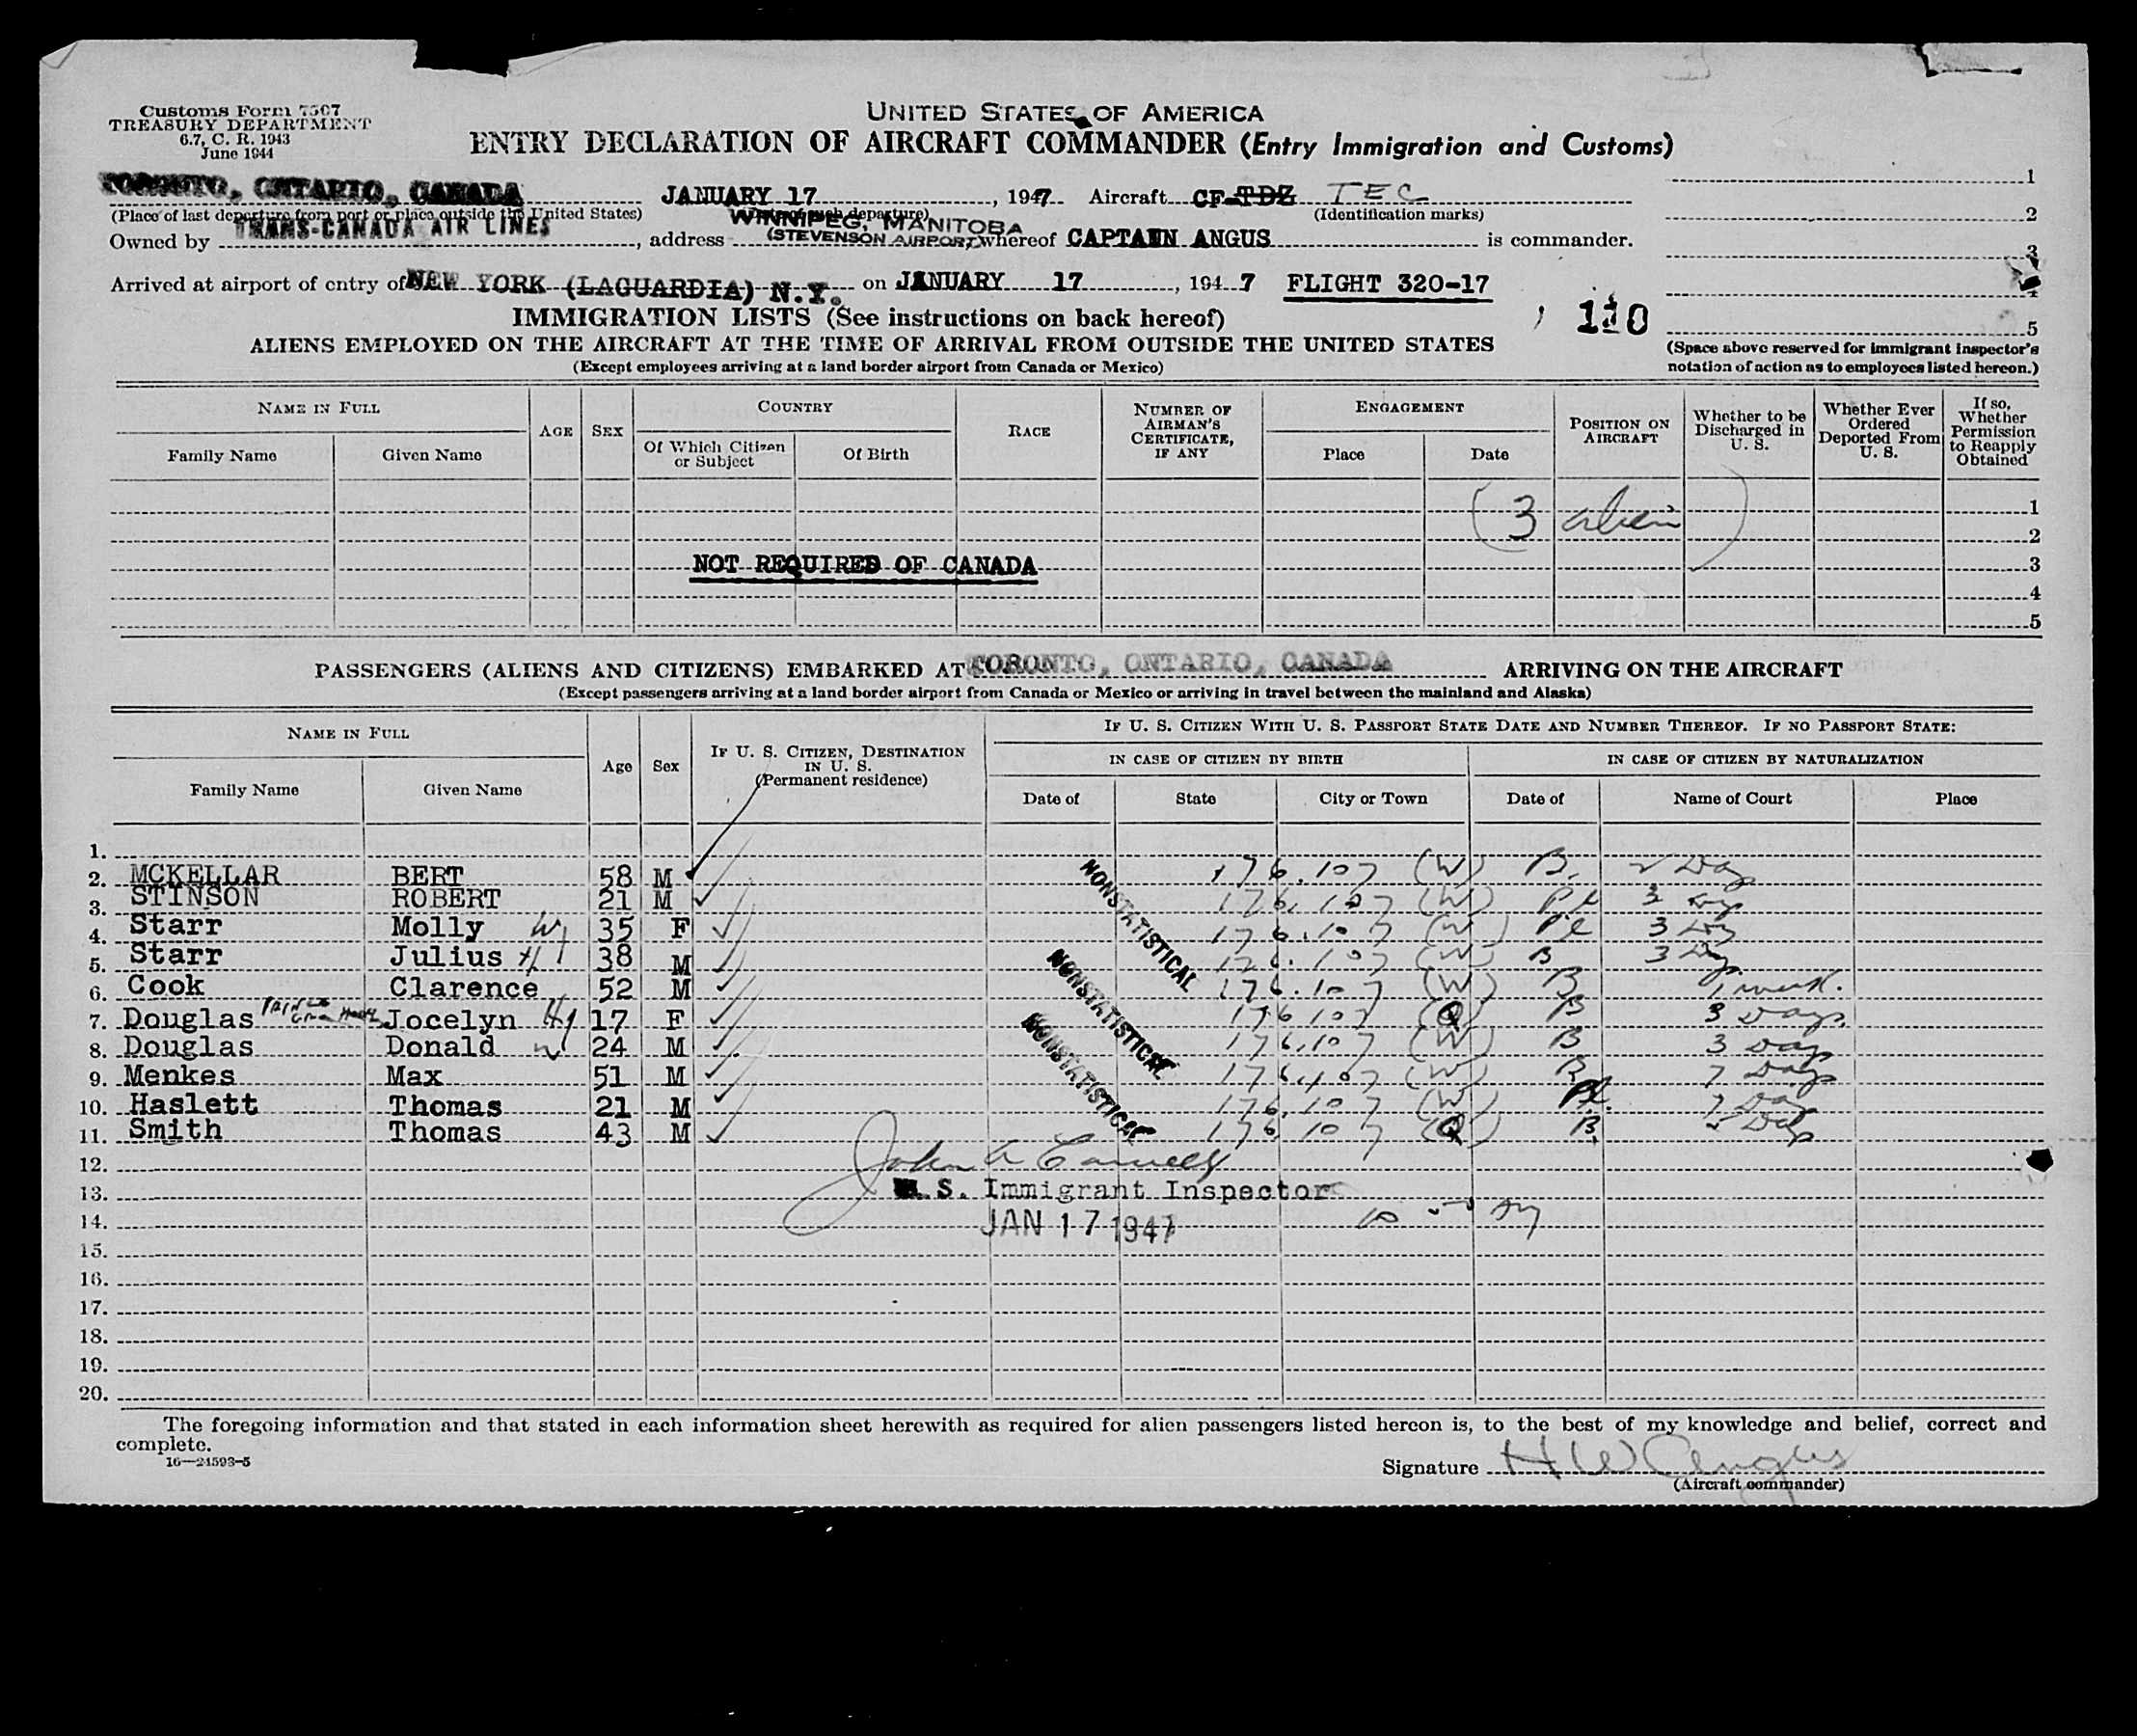 Customs Form 7507
TREASURY DEPARTMENT
6.7, C. R. 1943
June 1944
UNITED STATES OF AMERICA
ENTRY DECLARATION OF AIRCRAFT COMMANDER (Entry Immigration and Customs)
TORONTO, ONTARIO, CANADA JANUARY 17, 1947 Aircraft CF-TDZ TEC
(Place of last departure from port or place outside the United States) (Date of such departure) (Identification marks)
Owned by TRANS-CANADA AIR LINES, address WINNIPEG, MANITOBA (STEVENSON AIRPORT) whereof CAPTAIN ANGUS is commander.
Arrived at airport of entry of NEW YORK (LAGUARDIA) N.Y. on JANUARY 17, 1947 FLIGHT 320-17
110
1
2
3
4
5
(Space above reserved for immigrant inspector's notation of action as to employees listed hereon.)
IMMIGRATION LISTS (See instructions on back hereof)
ALIENS EMPLOYED ON THE AIRCRAFT AT THE TIME OF ARRIVAL FROM OUTSIDE THE UNITED STATES
(Except employees arriving at a land border airport from Canada or Mexico)
NAME IN FULL AGE SEX COUNTRY RACE NUMBER OF AIRMAN'S CERTIFICATE, IF ANY ENGAGEMENT POSITION ON AIRCRAFT Whether to be Discharged in U. S. Whether Ever Ordered Deported From U. S. If so, Whether Permission to Reapply Obtained
Family Name Given Name Of Which Citizen or Subject Of Birth Place Date
(3 alien) 1
2
NOT REQUIRED OF CANADA 3
4
5
PASSENGERS (ALIENS AND CITIZENS) EMBARKED AT TORONTO, ONTARIO, CANADA ARRIVING ON THE AIRCRAFT
(Except passengers arriving at a land border airport from Canada or Mexico or arriving in travel between the mainland and Alaska)
NAME IN FULL Age Sex IF U. S. CITIZEN, DESTINATION IN U. S. (Permanent residence) IF U. S. CITIZEN WITH U. S. PASSPORT STATE DATE AND NUMBER THEREOF. IF NO PASSPORT STATE:
IN CASE OF CITIZEN BY BIRTH IN CASE OF CITIZEN BY NATURALIZATION
Family Name Given Name Date of State City or Town Date of Name of Court Place
1.
2. MCKELLAR BERT 58 M 176.107 (W) B. 2 Day
3. STINSON ROBERT 21 M 176.107 (W) Pl 3 Days
4. Starr Molly W 35 F 176.107 (W) Pl 3 Day
5. Starr Julius H 38 M 176.107 (W) B 3 Day
6. Cook Clarence 52 M 176.107 (W) B 1 week.
7. Douglas Jocelyn 17 F 176 107 (Q) B 3 Days.
8. Douglas Donald 24 M 176.107 (W) B 3 Days
9. Menkes Max 51 M 176.107 (W) B 7 Days
10. Haslett Thomas 21 M 176.107 (W) Pl. 7 Day
11. Smith Thomas 43 M 176 107 (Q) B. Day
NONSTATISTICAL
NONSTATISTICAL
NONSTATISTICAL
12. John A
13. U.S. Immigrant Inspector
14. JAN 17 1947
15.
16.
17.
18.
19.
20.
The foregoing information and that stated in each information sheet herewith as required for alien passengers listed hereon is, to the best of my knowledge and belief, correct and
complete.
16—24593-5
Signature H W Angus
(Aircraft commander)